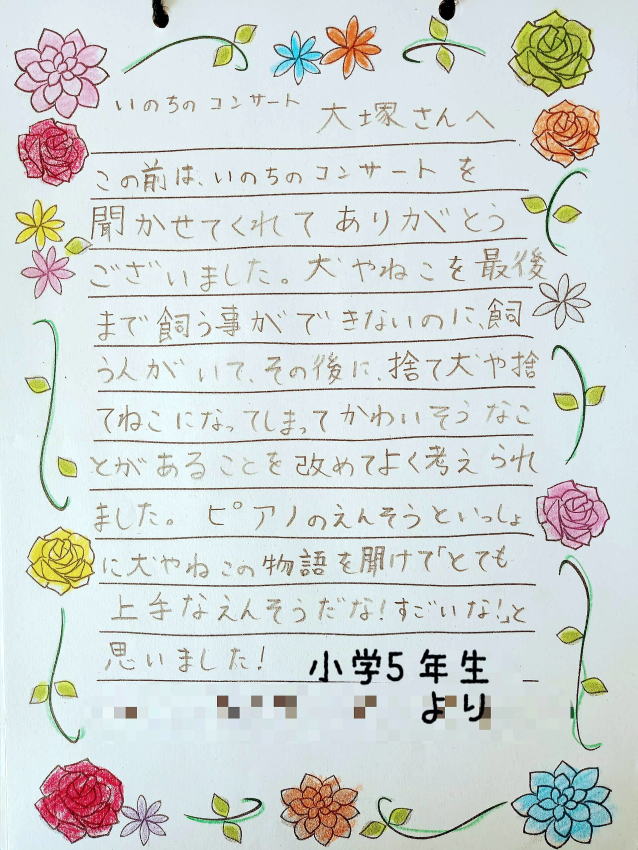 いのちの コンサート 大塚さんへ
この前は、いのちのコンサート を
聞かせてくれて ありがとう
ございました。犬やねこを最後
まで飼う事ができないのに、飼
う人がいて、その後に、捨て犬や捨
てねこになってしまってかわいそうなこ
とがあることを改めてよく考えられ
ました。ピアノのえんそうといっしょ
に犬やねこの物語を聞けて「とても
上手なえんそうだな!すごいな!」と
思いました!
小学5年生
より